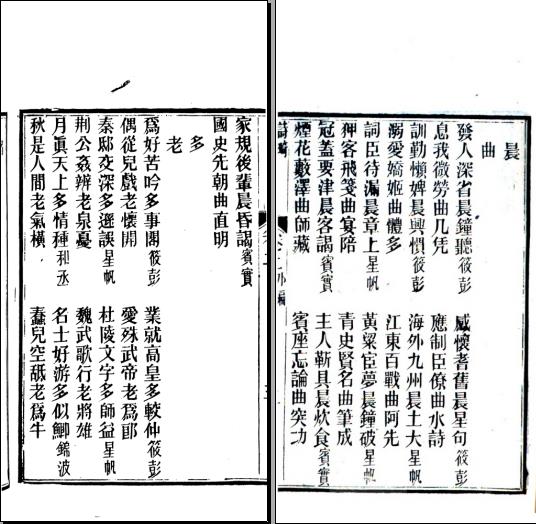 晨
曲
發人深省晨鐘聽筱彭　感懷耆舊晨星句筱彭
息我微勞曲几凭　應制臣僚曲水詩
訓勤懶婢晨興慣筱彭　海外九州晨土大星帆
溺愛嬌姬曲體多　江東百戰曲阿先
詞臣待漏晨章上星帆　黃粱宦夢晨鐘破星帆
狎客飛箋曲宴陪　青史賢名曲筆成
冠蓋要津晨客謁賓實　主人靳具晨炊食賓實
煙花藪澤曲師藏　賓座忘論曲突功
外編
家規後輩晨昏謁賓實
國史先朝曲直明
多
老
爲好苦吟多事閣筱彭　業就高皇多較仲筱彭
偶從兒戲老懷開　愛殊武帝老爲郎
秦邸交深多遜誤星帆　杜陵文字多師益星帆
荆公姦辨老泉憂　魏武歌行老將雄
月眞天上多情種和丞　名士好游多似鯽錦波
秋是人間老氣橫　蠢兒空舐老爲牛